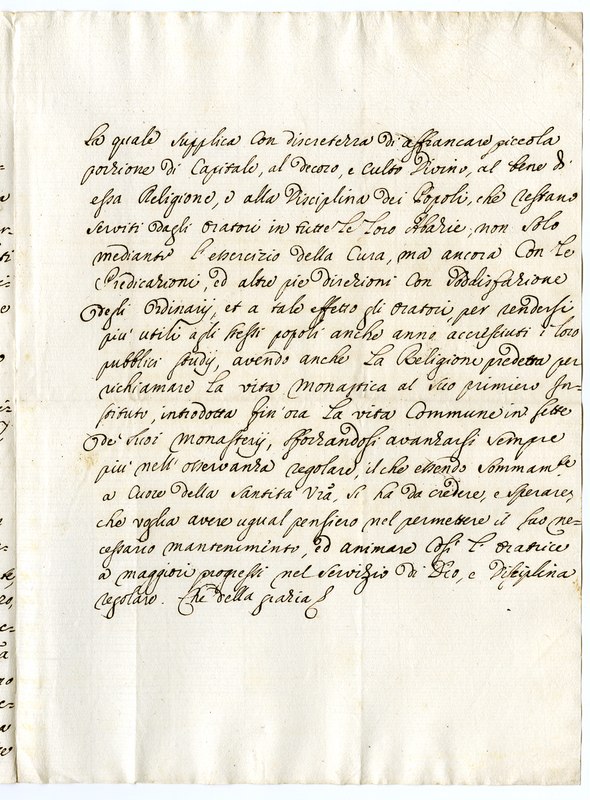 La quale supplica con discretezza di affrancare piccola
porzione di Capitale, al decoro, e Culto Divino, al bene di
essa Religione, e alla Disciplina dei Popoli, che restano
serviti dagli Oratori in tutte le loro Abazie; non solo
mediante l'essercizio della Cura, ma ancora con le
Predicazioni, ed altre pie direzioni con soddisfazione
degli Ordinarij, et a tale effetto gli Oratori per rendersi
piu' utili agli stessi popoli anche anno accresciuti i loro
pubblici studij, avendo anche la Religione predetta per
richiamare la vita monastica al suo primiero In=
stituto, introdotta fin'ora la vita Commune in sette
de' suoi monasterij, sforzandosi avanzarsi sempre
piu' nell'osservanza regolare, il che essendo sommam.te
a Cuore della Santita V.ra, si ha da credere, e sperare,
che voglia avere ugual pensiero nel permettere il suo ne=
cessario mantenimento, ed animare cosi l'Oratrice
a maggiori progressi nel servizio di Dio, e Disciplina
regolare. Che della grazia